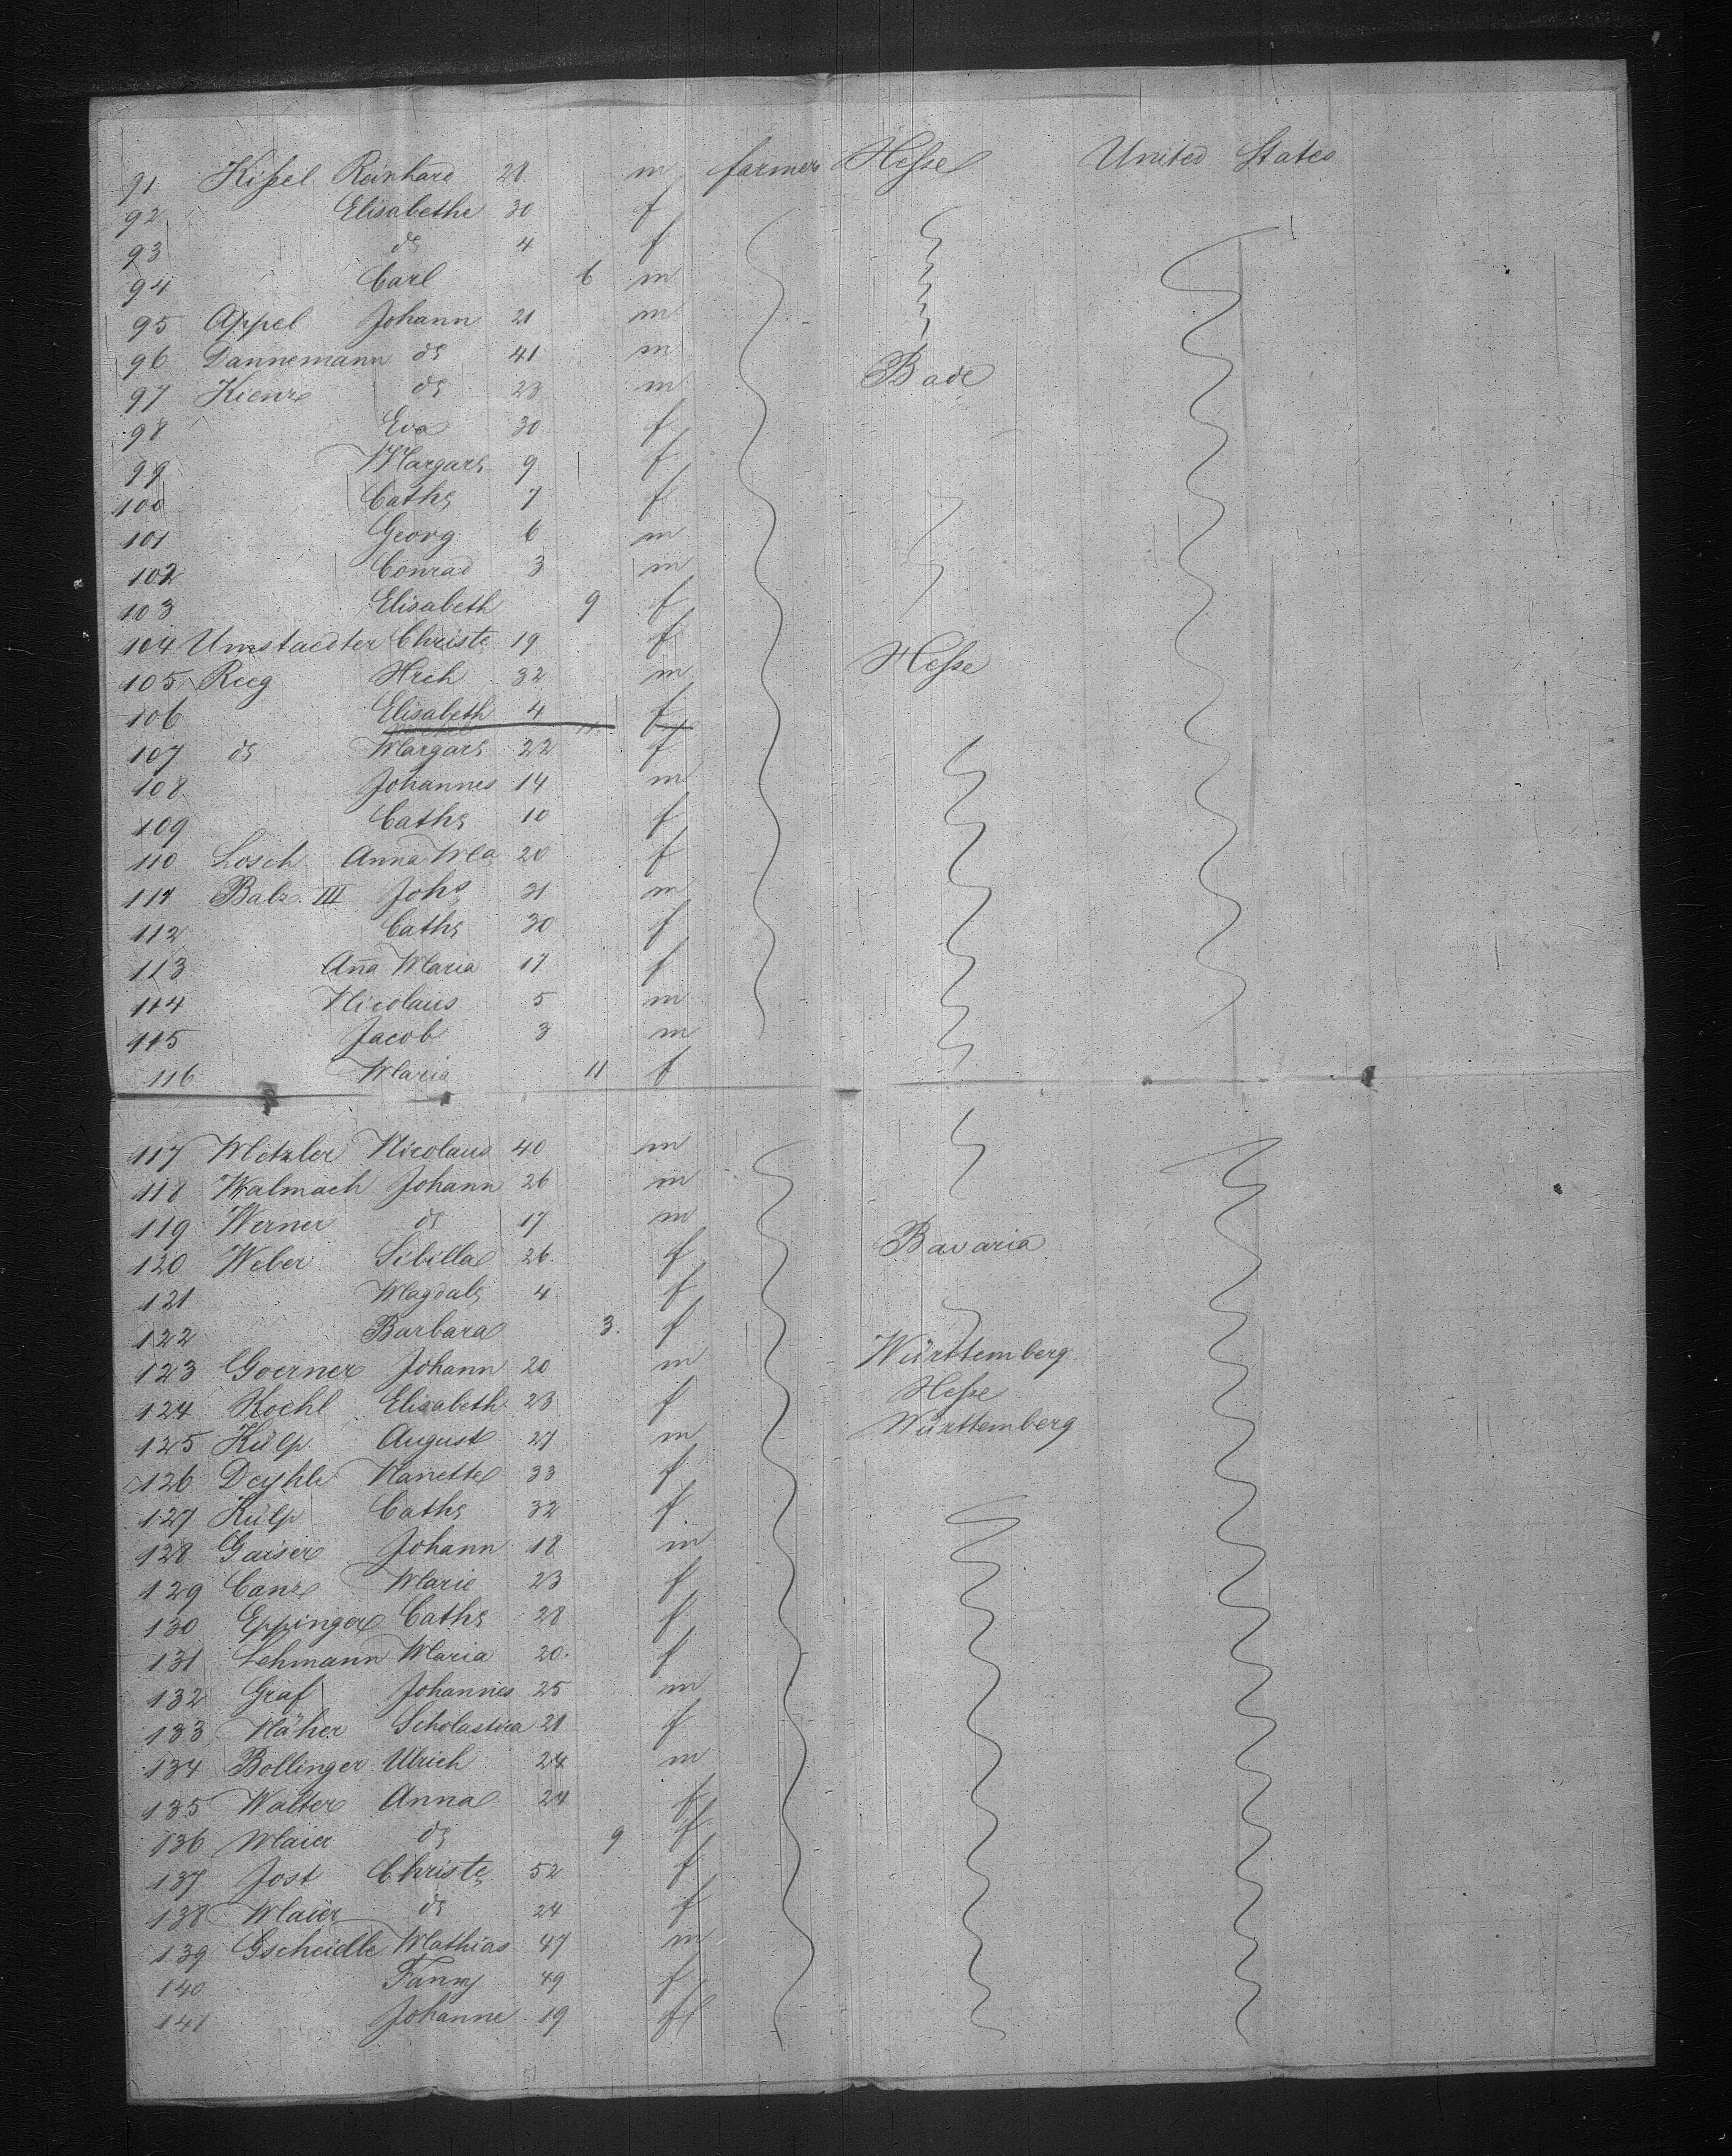 91 Kißel Reinhard 28 m farmer Hesse United States
92 Elisabethe 30 f
93 do 4 f
94 Carl 6 m
95 Appel Johann 21 m
96 Dannemann do 41 m
97 Kienz do 23 m Bade
98 Eva 30 f
99 Margar. 9 f
100 Cath. 7 f
101 Georg 6 m
102 Conrad 3 m
103 Elisabeth 9 f
104 Umstaedter Christe 19 f
105 Reeg Hrch 32 m Hesse
106 Elisabeth 4 f
107 do Margar. 22 f
108 Johannes 14 m
109 Cath. 10 f
110 Losch Anna Ma 20 f
111 Balz III Johs 31 m
112 Cath. 30 f
113 Ana Maria 17 f
114 Nicolaus 5 m
115 Jacob 3 m
116 Maria 11 f
117 Metzler Nicolaus 40 m
118 Walmach Johann 26 m
119 Werner do 17 m
120 Weber Sibilla 26 f Bavaria
121 Magdal. 4 f
122 Barbara 3 f
123 Goerner Johann 20 m Württemberg
124 Koehl Elisabeth 23 f Hesse
125 Külp August 27 m Württemberg
126 Deyhle Nanette 33 f
127 Külp Cath. 32 f
128 Gaiser Johann 18 m
129 Canz Marie 23 f
130 Eppinger Cath. 28 f
131 Lehmann Maria 20 f
132 Graf Johannes 25 m
133 Näher Scholastica 21 f
134 Bollinger Ulrich 24 m
135 Walter Anna 24 f
136 Maier do 9 f
137 Jost Christe 52 f
138 Maier do 24 f
139 Gscheidle Mathias 47 m
140 Fanny 49 f
141 Johanne 19 f